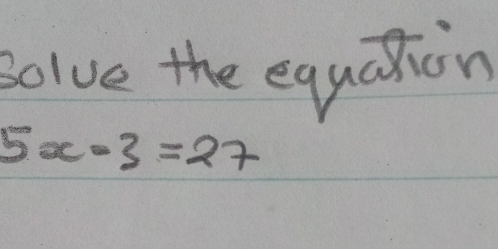 Solve the equation
5x-3=27